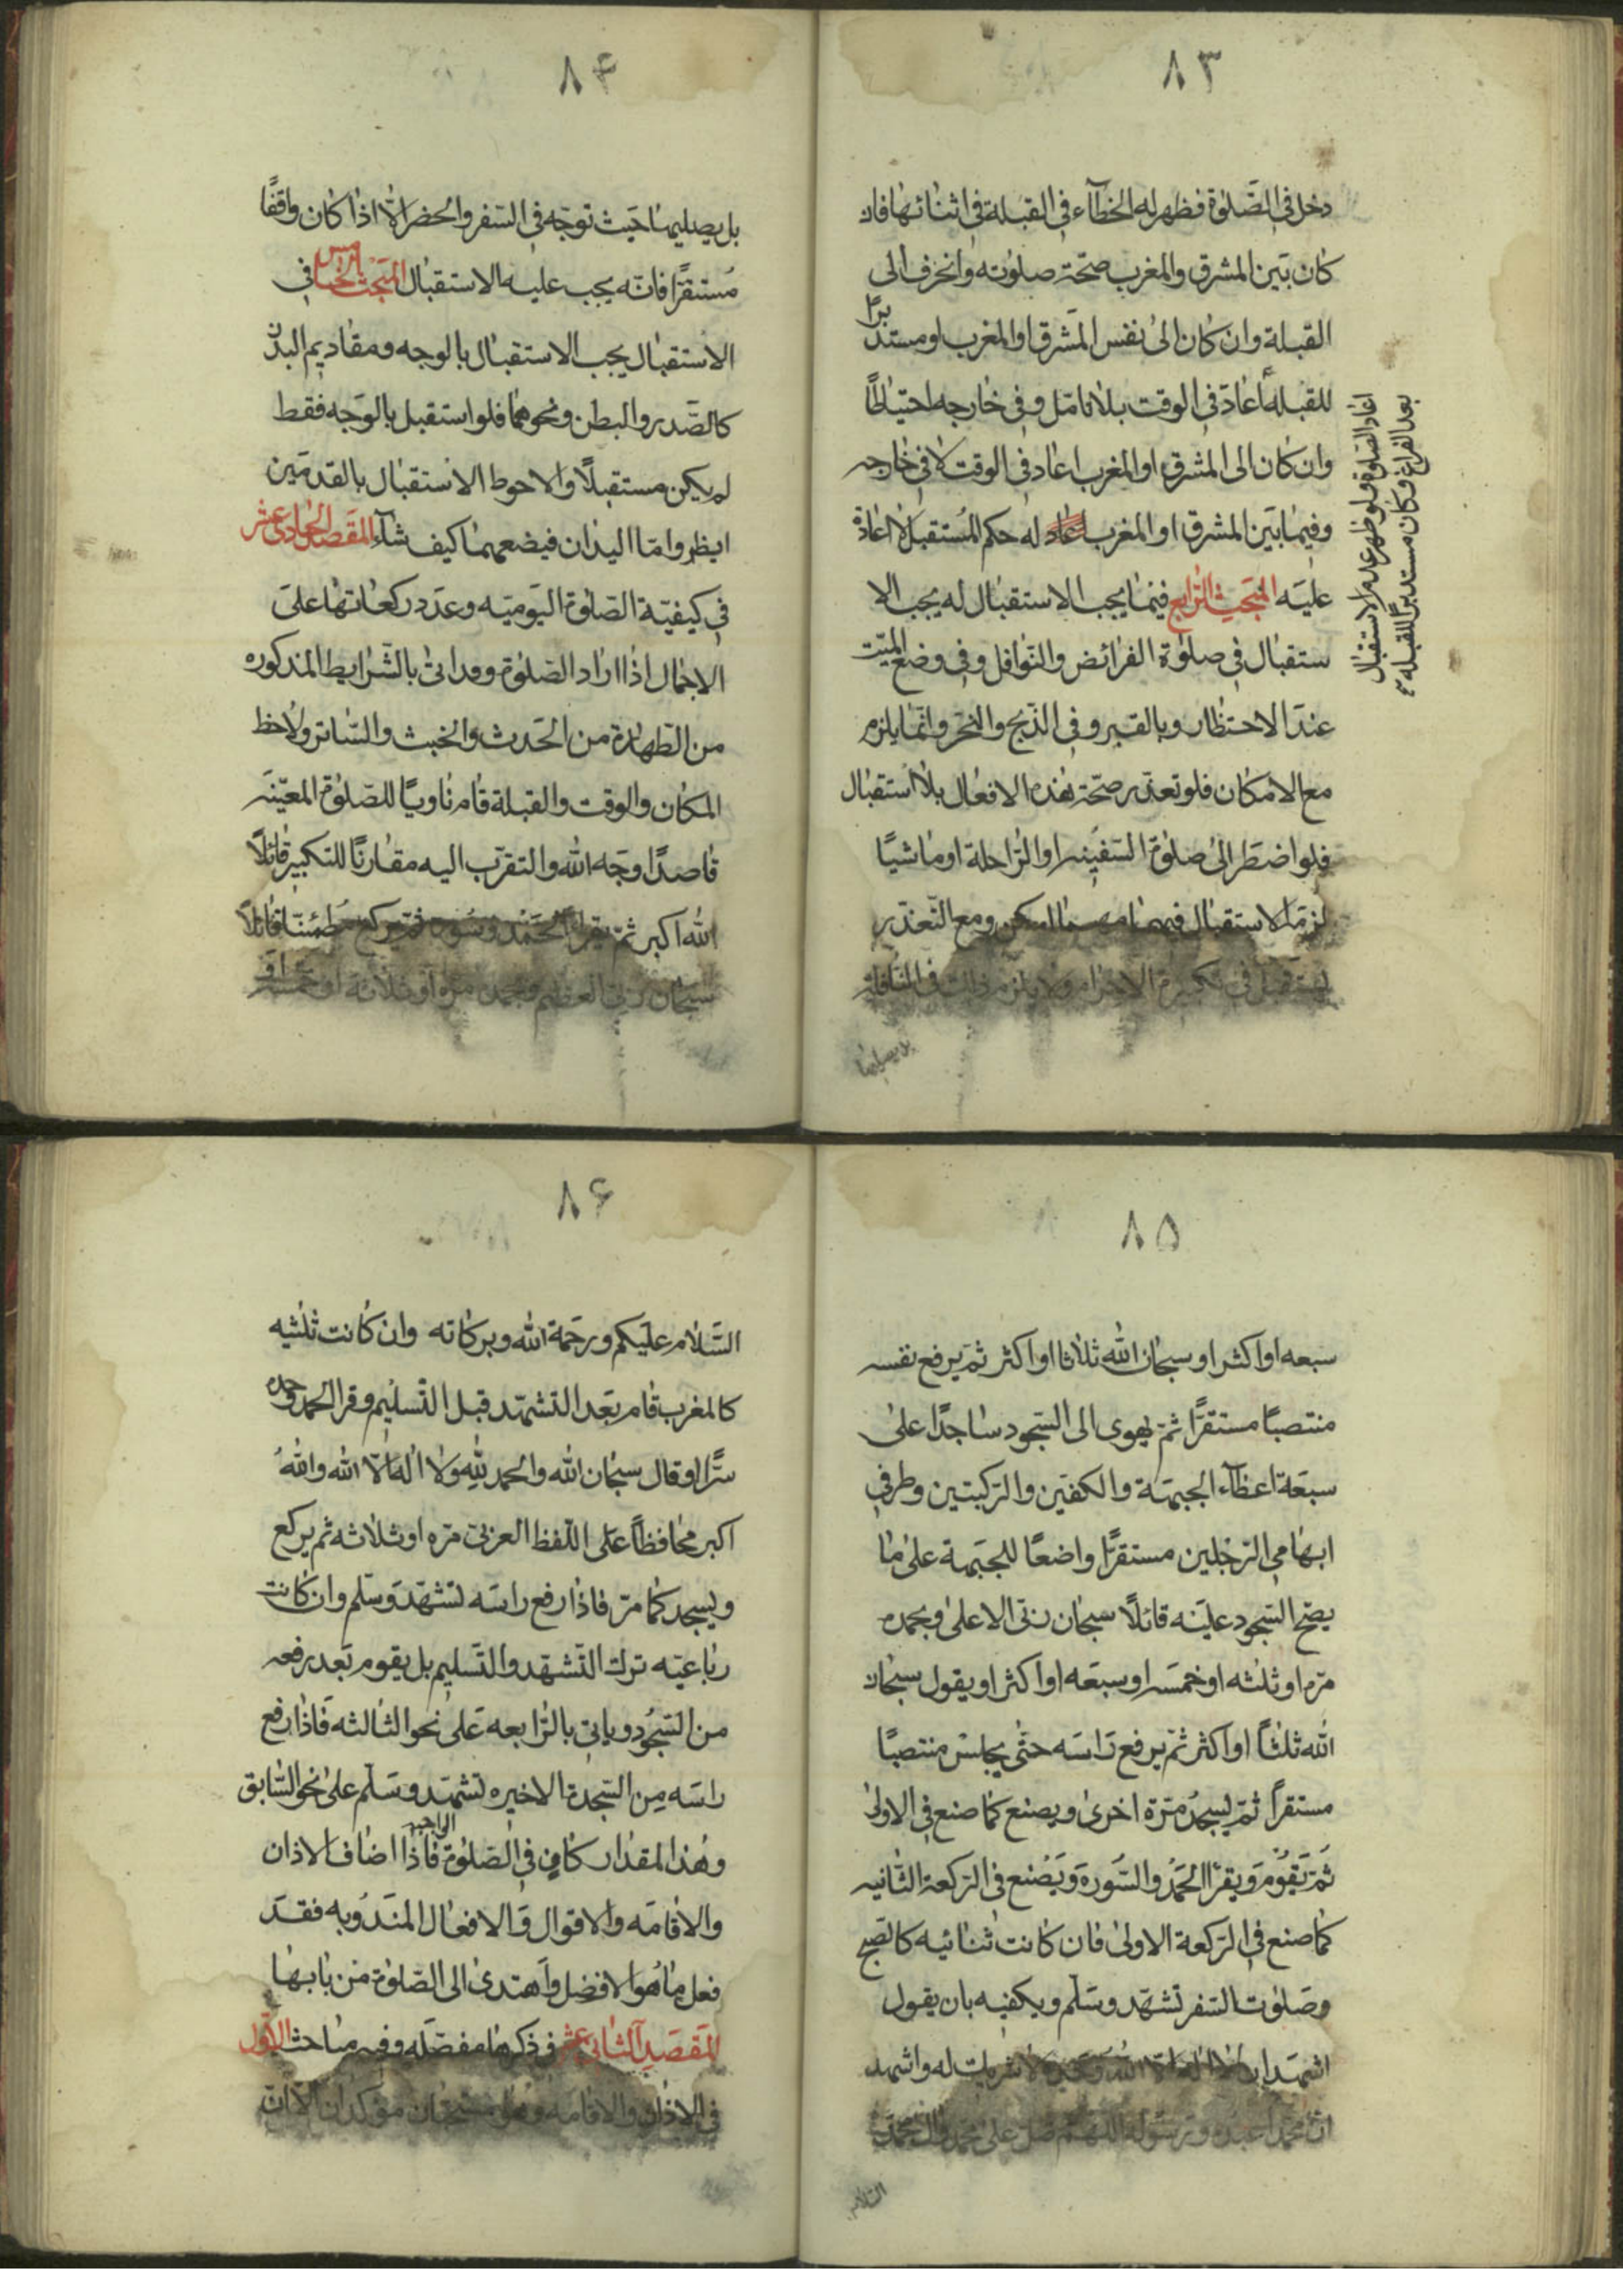 ٨٣
دخل في الصَّلوٰة فظهر له الخطآء في القبلة في اثنٰائهٰا فان
كٰان بَين المشرق والمغرب صحّة صلوٰته وانحرف الى
القبلة وان كٰان الىٰ نفس المَشرق او المغرب او مستدبرًا
للقبلة اعٰادَ في الوقت بلاٰ تامّل وفي خٰارجه احتيٰاطًا
وان كان الى المشرق او المغرب اعٰاد في الوقت لاٰ في خٰارجه
وفيمٰا بَين المشرق او المغرب له حكم المُستقبل لاٰ اعٰادة
عليَه المَبحث الرّٰابع فيمٰا يجب الاستقبٰال له يجب الا
ستقبٰال في صلوٰة الفرائض والنّوٰافل وفي وضع الميّت
عندَ الاحتظٰار وبالقبر وفي الذّبح والنحر وانّمٰا يلزم
مع الامكٰان فلو تعذّر صحّة هٰذه الافعٰال بلاٰ استقبٰال
فلو اضطَر الىٰ صلوٰة السّفينه او الرّٰاحلة او مٰاشيًا
لزمَه الاستقبٰال فيهمٰا مهمٰا امكن ومع التّعذّر
يستقبل في تكبيرة الاحرٰام ولاٰ يلزم ذلك في النّافلة
بل يصليهٰا
اعٰاد الصّلوٰة ولو ظهر عدم الاستقبٰال
بعد الفرٰاغ وكٰان مستدبرًا للقبلة
٨۴
بل يصليهٰا حَيث توجّه في السّفر والحضر الاّٰ اذٰا كٰان وٰاقفًا
مُستقرًّا فانّه يجب عليه الاستقبٰال المَبحث الخٰامس في
الاستقبٰال يجب الاستقبٰال بالوجه ومقٰاديم البدَن
كالصَّدر والبطن ونحوهمٰا فلو استقبل بالوَجه فقط
لم يكن مستقبلًا والاحوط الاستقبٰال بالقدمَين
ايظٰا وامّا اليدٰان فيضعهمٰا كيف شٰآء المقصد الحٰادى عشر
في كيفيّة الصّلوٰة اليَوميّه وعدَد ركعٰاتهٰا علىَ
الاجمٰال اذٰا ارٰاد الصّلوٰة وقد اتىٰ بالشّرٰايط المذكوره
من الطّهٰارة من الحَدث والخبث والسّٰاتر ولاٰحظ
المكٰان والوقت والقبلة قٰام نٰاويًا للصّلوٰة المعيّنَه
قٰاصدًا وجَه الله والتقرّب اليه مقٰارنًا للتكبير قٰائلًا
الله اكبر ثمّ يقرأ الحَمد وسُورة ثمّ يركع مطمئنًا قٰائلًا
سبحٰان ربّي العظيم وبحمده مرّة او ثلاٰثه او خمسَه او
٨۵
سبعه او اكثر او سبحٰان الله ثلاٰثا او اكثر ثمّ يرفع نفسه
منتصبًا مستقرًّا ثمّ يهوى الى السّجود سٰاجدًا علىٰ
سبعَة اعظٰآء الجبهَة والكفّين والرّكبتين وطرفي
ابهٰامي الرّجلين مستقرًّا وٰاضعًا للجبَهة علىٰ مٰا
يصحّ السّجود عليَه قٰائلًا سبحٰان ربّى الاعلىٰ وبحمده
مرّه او ثلٰثه او خمسَه او سبعَه او اكثر او يقول سبحٰان
الله ثلٰثاً او اكثر ثمّ يرفع رٰاسَه حتّىٰ يجلسَ منتصبًا
مستقرًا ثمّ يسجدُ مرّة اخرىٰ ويصنع كمٰا صنع في الاولىٰ
ثمّ يَقوُم وَيقرأ الحَمدُ والسّورة وَيَصُنع في الرّكعة الثّانيه
كمٰا صنع في الرّكعة الاولىٰ فان كٰانت ثنٰائيه كالصّبح
وصَلوٰت السّفر تشهّد وسَلّم ويكفيه بان يقول
اشهَد ان لاٰ اله الاّٰ الله وَحدَه لاٰ شريك له واشهد
انّ محمّدًا عبده ورسُوله اللّهمّ صلّ علىٰ محمّد وٰال محمّد
السّلام
٨۶
السَّلاٰم علَيكم ورحَمة الله وبركٰاته وان كٰانت ثلٰثيه
كالمغرب قٰام بعَد التشهّد قبل التّسليم وقرا الحمد وحده
سرًّا او قال سبحٰان الله والحمد لله ولاٰ اله الاّٰ الله واللهُ
اكبر محٰافظاً عَلى اللّفظ العربىّ مرّه او ثلاٰثه ثم يركع
ويسجد كمٰا مرّ فاذٰا رفع راسَه تشهّد وَسَلم وان كٰانت
ربٰاعيّه ترك التّشهّد والتّسليم بل يقوم بَعد رفعه
من السّجُود ويٰاتي بالرّٰابعه عَلىٰ نحو الثالثه فَاذٰا رفع
راسَه مِن السّجدة الاخيره تشهّد وسَلّم علىٰ نحو السّٰابق
وهٰذا المقدٰار كٰافٍ في الصّلوٰة الواجبه فاذٰا اضٰاف الاذان
والاقٰامَه والاقوٰال وَالافعٰال المنَدُوبه فقدَ
فعل مٰا هُوَ الافضل وَاهتدىٰ الى الصّلوٰة مِن بٰابهٰا
المَقصَد الثّانى عشر في ذكرهٰا مفصّلَه وفيه مبٰاحث الاوّل
في الاذٰان والاقٰامَه وهمٰا مستحبّٰان مؤكدٰان الاّٰ ان